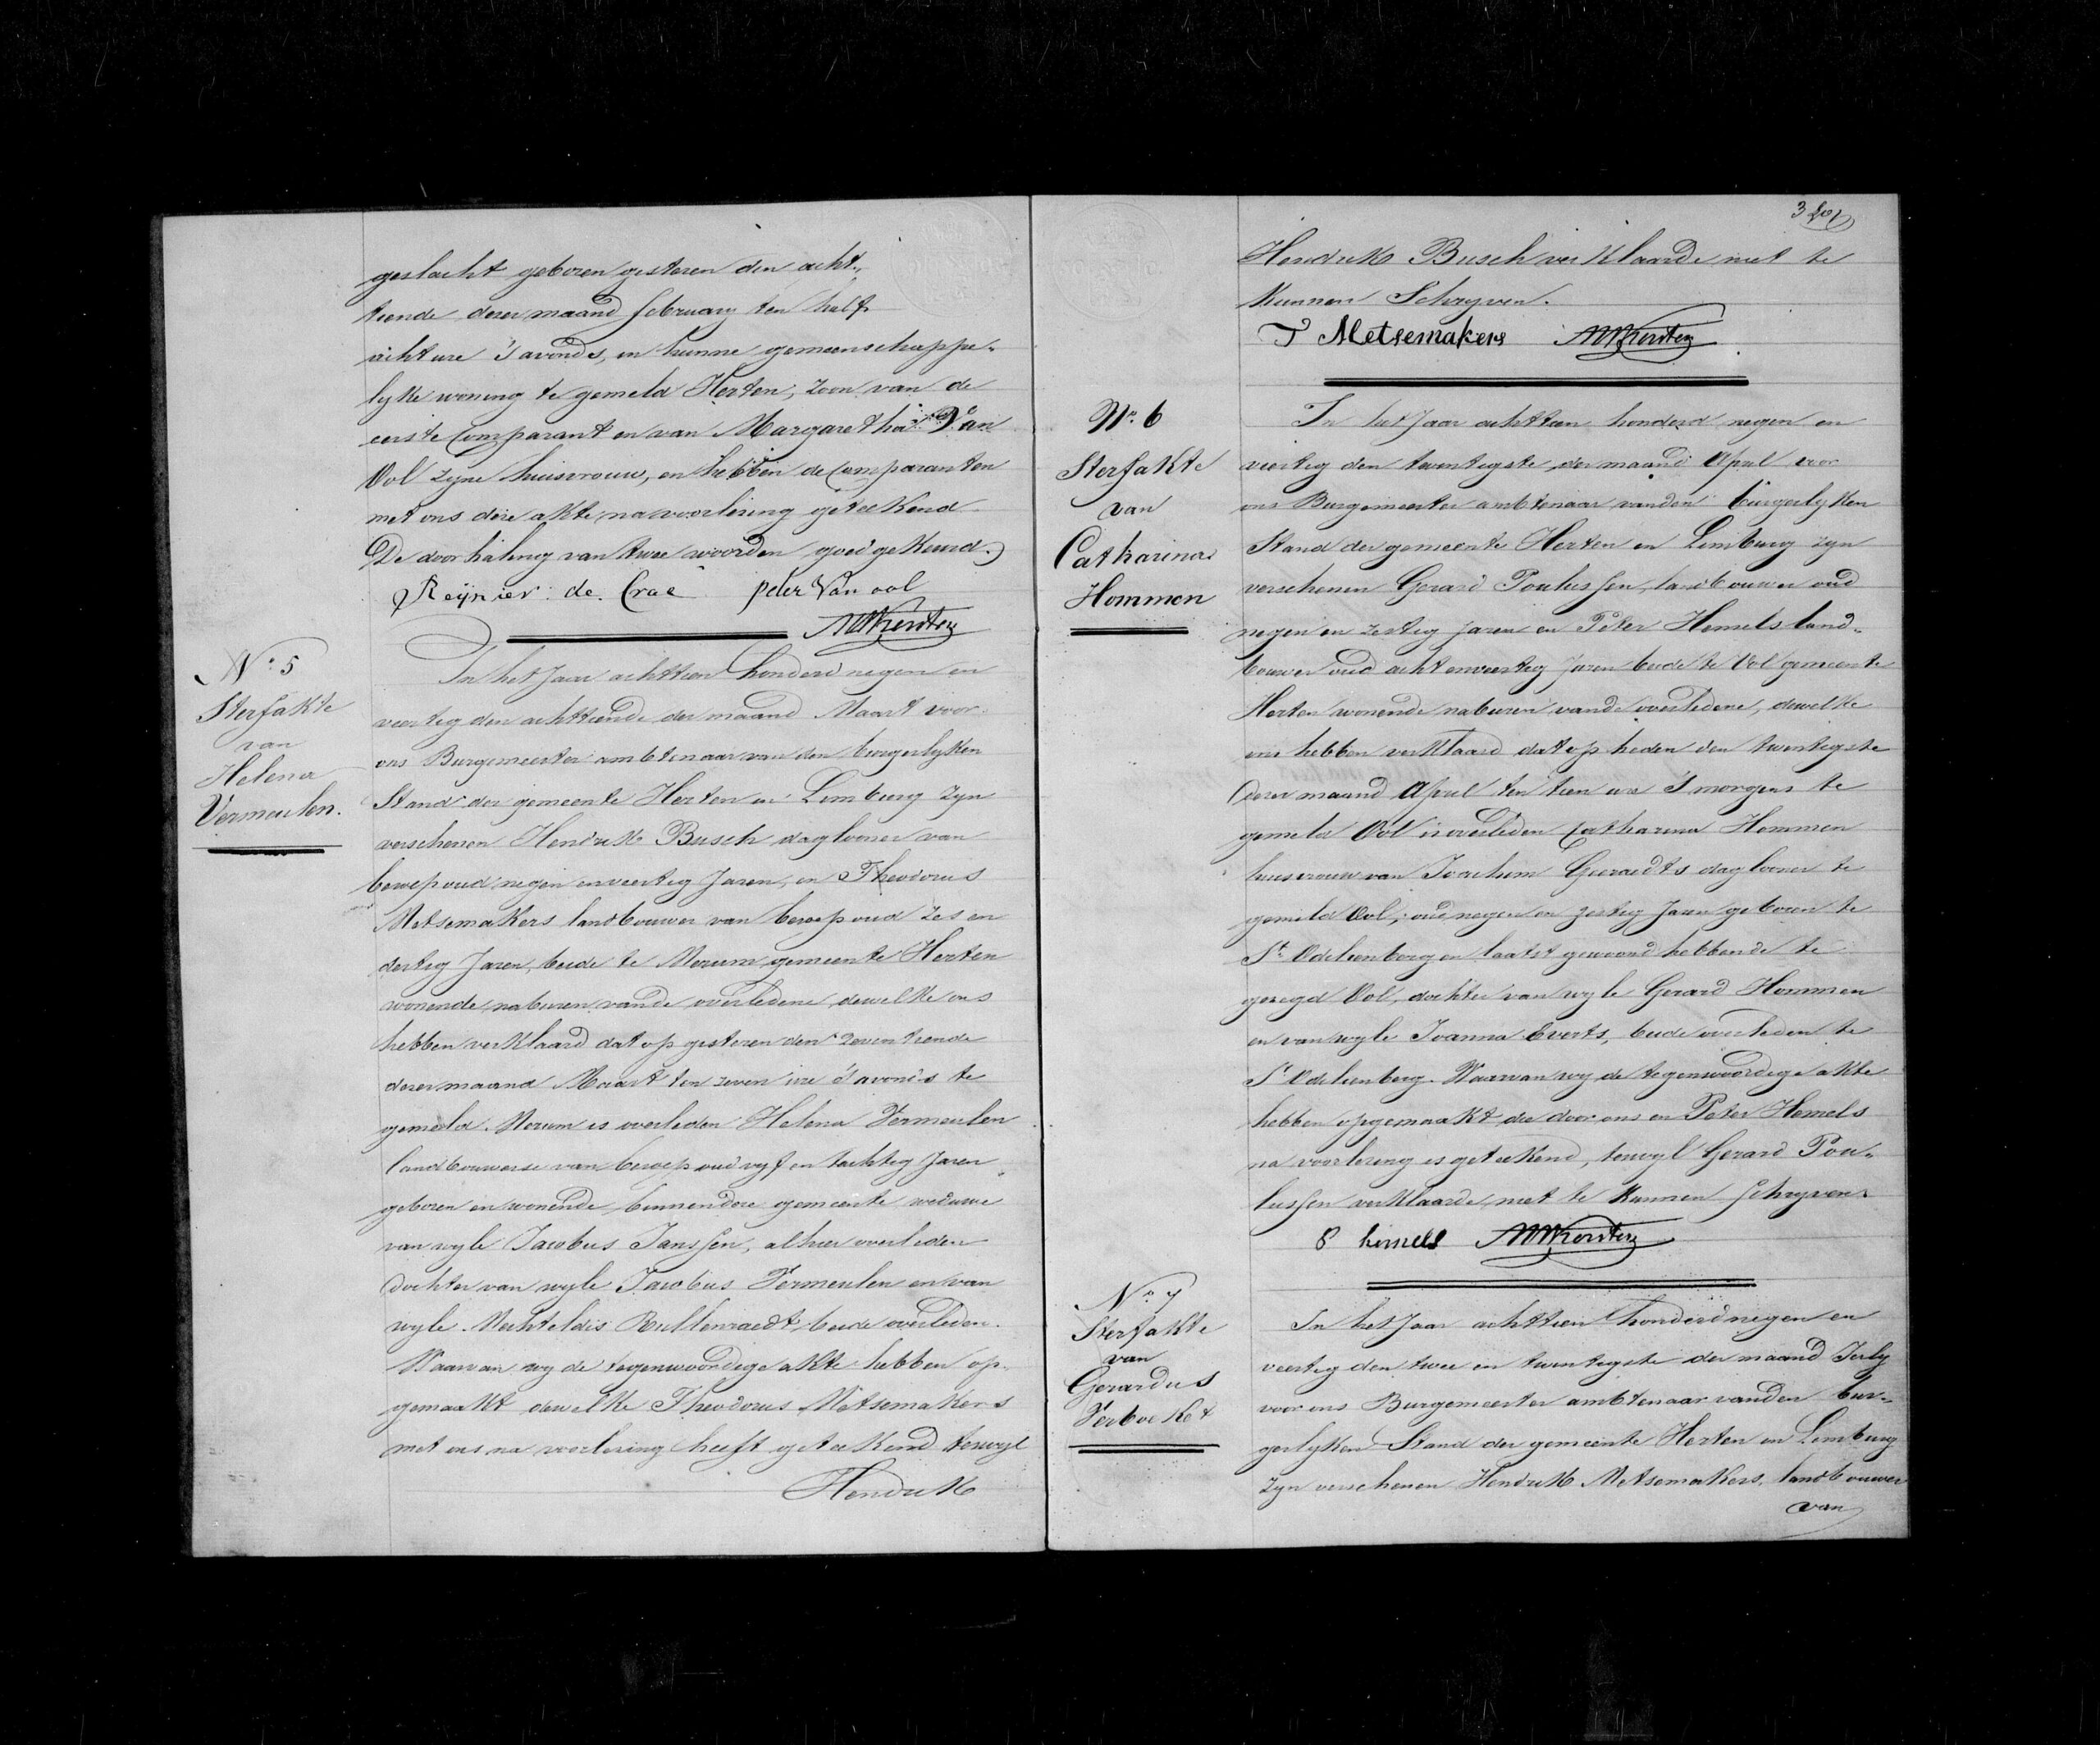 geslacht geboren gisteren den acht-
tiende dezer maand february ten half
acht ure 's avonds, in hunne gemeenschappe-
lyke woning te gemeld Herten, zoon van de
eerste Comparant en van Margaretha Van
Ool zyne huisvrouw, en hebben de Comparanten
met ons deze akte, na voorlezing geteekend.
(De doorhaling van twee woorden goedgekeurd.)
Reÿnier de Crae peter van ool
MWKersten
N.º 5
Sterfakte
van
Helena
Vermeulen.
In het Jaar achttien honderd negen en
veertig den achttiende der maand Maart voor
ons Burgemeester ambtenaar van den burgerlyken
Stand der gemeente Herten in Limburg zyn
verschenen Hendrik Busch daglooner van
beroep oud negen en veertig Jaren, en Theodorus
Metsemakers landbouwer van beroep oud zes en
dertig Jaren, beide te Merum gemeente Herten
wonende, naburen van de overledene dewelke ons
hebben verklaard dat op gisteren den zeventiende
dezer maand Maart ten zeven ure 's avonds te
gemeld Merum is overleden Helena Vermeulen
landbouwerse van beroep oud vyf en tachtig Jaren
geboren en wonende binnen deze gemeente weduwe
van wyle Jacobus Janssen, alhier overleden
dochter van wyle Jacobus Vermeulen en van
wyle Mechteldis beide overleden.
Waarvan wy de tegenwoordige akte hebben op-
gemaakt dewelke Theodorus Metsemakers
met ons na voorlezing heeft geteekend terwyl
Hendrik
3
Hendrik Busch verklaarde niet te
kunnen Schryven.
T Metsemakers MWKersten
Nº 6
Sterfakte
van
Catharina
Hommen
In het Jaar achttien honderd negen en
veertig den twentigste der maand April voor
ons Burgemeester ambtenaar van den burgerlyken
Stand der gemeente Herten in Limburg zyn
verschenen Gerard Poulussen, landbouwer oud
negen en zestig jaren en Peter Hemels land-
bouwer oud acht en veertig Jaren beide te Ool gemeente
Herten wonende naburen van de overledene, dewelke
ons hebben verklaard dat op heden den twentigste
dezer maand April ten tien ure 's morgens te
gemeld Ool is overleden Catharina Hommen
huisvrouw van Joachim Gueraedts daglooner te
gemeld Ool, oud negen en zestig Jaren geboren te
St Odelienberg en laatst gewoond hebbende te
gezegd Ool, dochter van wyle Gerard Hommen
en van wyle Joanna Everts, beide overleden te
St Odelienberg. Waarvan wy de tegenwoordige akte
hebben opgemaakt die door ons en Peter Hemels
na voorlezing is geteekend, terwyl Gerard Pou-
lussen verklaarde niet te kunnen schryven.
P hemels MWKersten
Nº 7
Sterfakte
van
Gerardus
Verboeket
In het Jaar achttien honderd negen en
veertig den twee en twentigste der maand July
voor ons Burgemeester ambtenaar van den bur-
gerlyken Stand der gemeente Herten in Limburg
zyn verschenen Hendrik Metsemakers, landbouwer
van